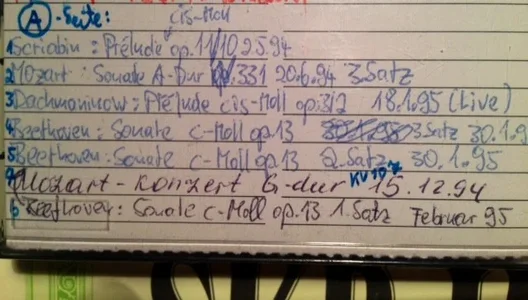 A-Seite: cis-Moll
1 Scriabin: Prélude op. 11/10 25.94
2 Mozart: Sonate A-Dur KV. 331 20.6.94 3. Satz
3 Rachmaninow: Prélude cis-Moll op. 3/2 18.1.95 (Live)
4 Beethoven: Sonate c-Moll op. 13 3. Satz 30.1.9
5 Beethoven: Sonate c-Moll op. 13 2. Satz 30.1.95
Mozart-Konzert G-dur KV 107 15.12.94
6 Beethoven: Sonate c-Moll op. 13 1. Satz Februar 95